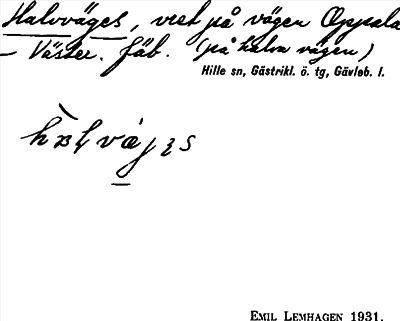 Halvväges, vret på vägen Oppala
– Väster. fäb. (på halva vägen)
Hille sn, Gästrikl. ö. tg, Gävleb. l.
EMIL LEMHAGEN 1931.